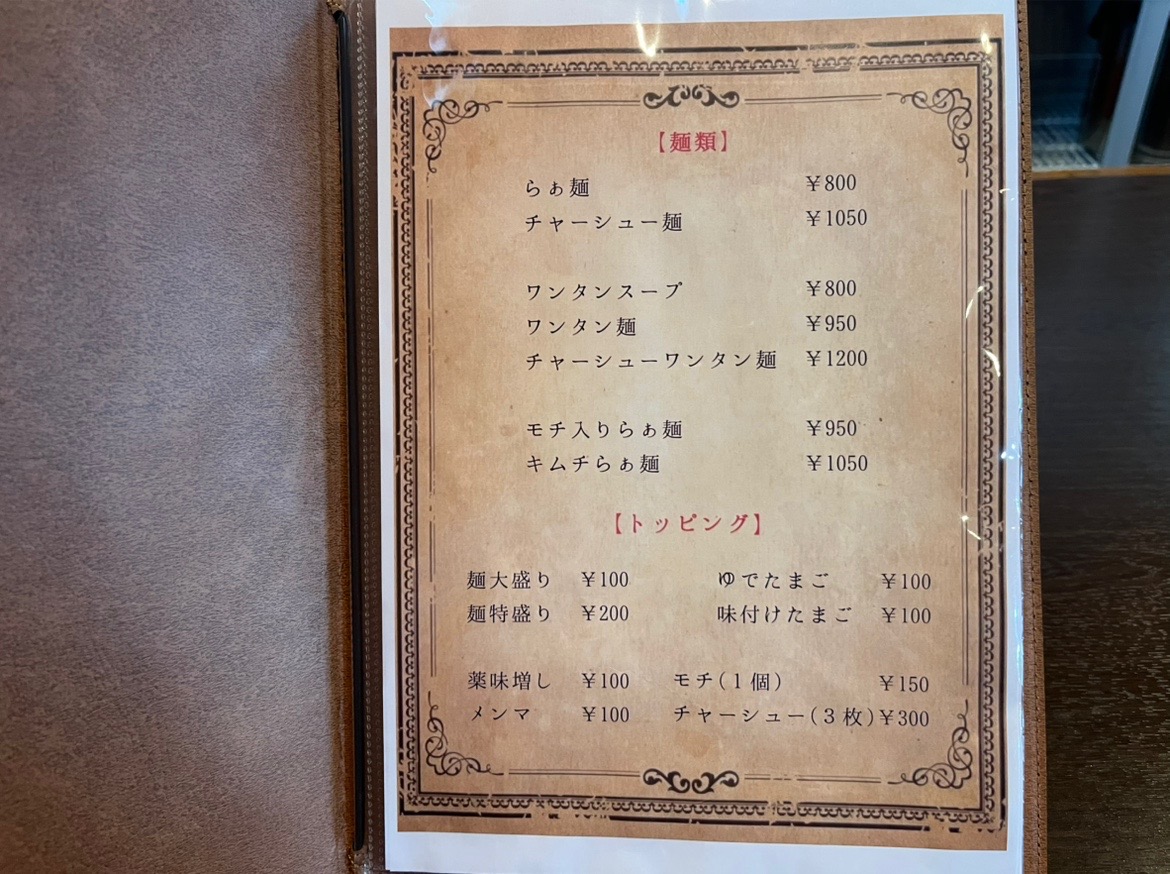 【麺類】
らぁ麺 ￥800
チャーシュー麺 ￥1050
ワンタンスープ ￥800
ワンタン麺 ￥950
チャーシューワンタン麺 ￥1200
モチ入りらぁ麺 ￥950
キムチらぁ麺 ￥1050
【トッピング】
麺大盛り ￥100 ゆでたまご ￥100
麺特盛り ￥200 味付けたまご ￥100
薬味増し ￥100 モチ(１個) ￥150
メンマ ￥100 チャーシュー(３枚)￥300